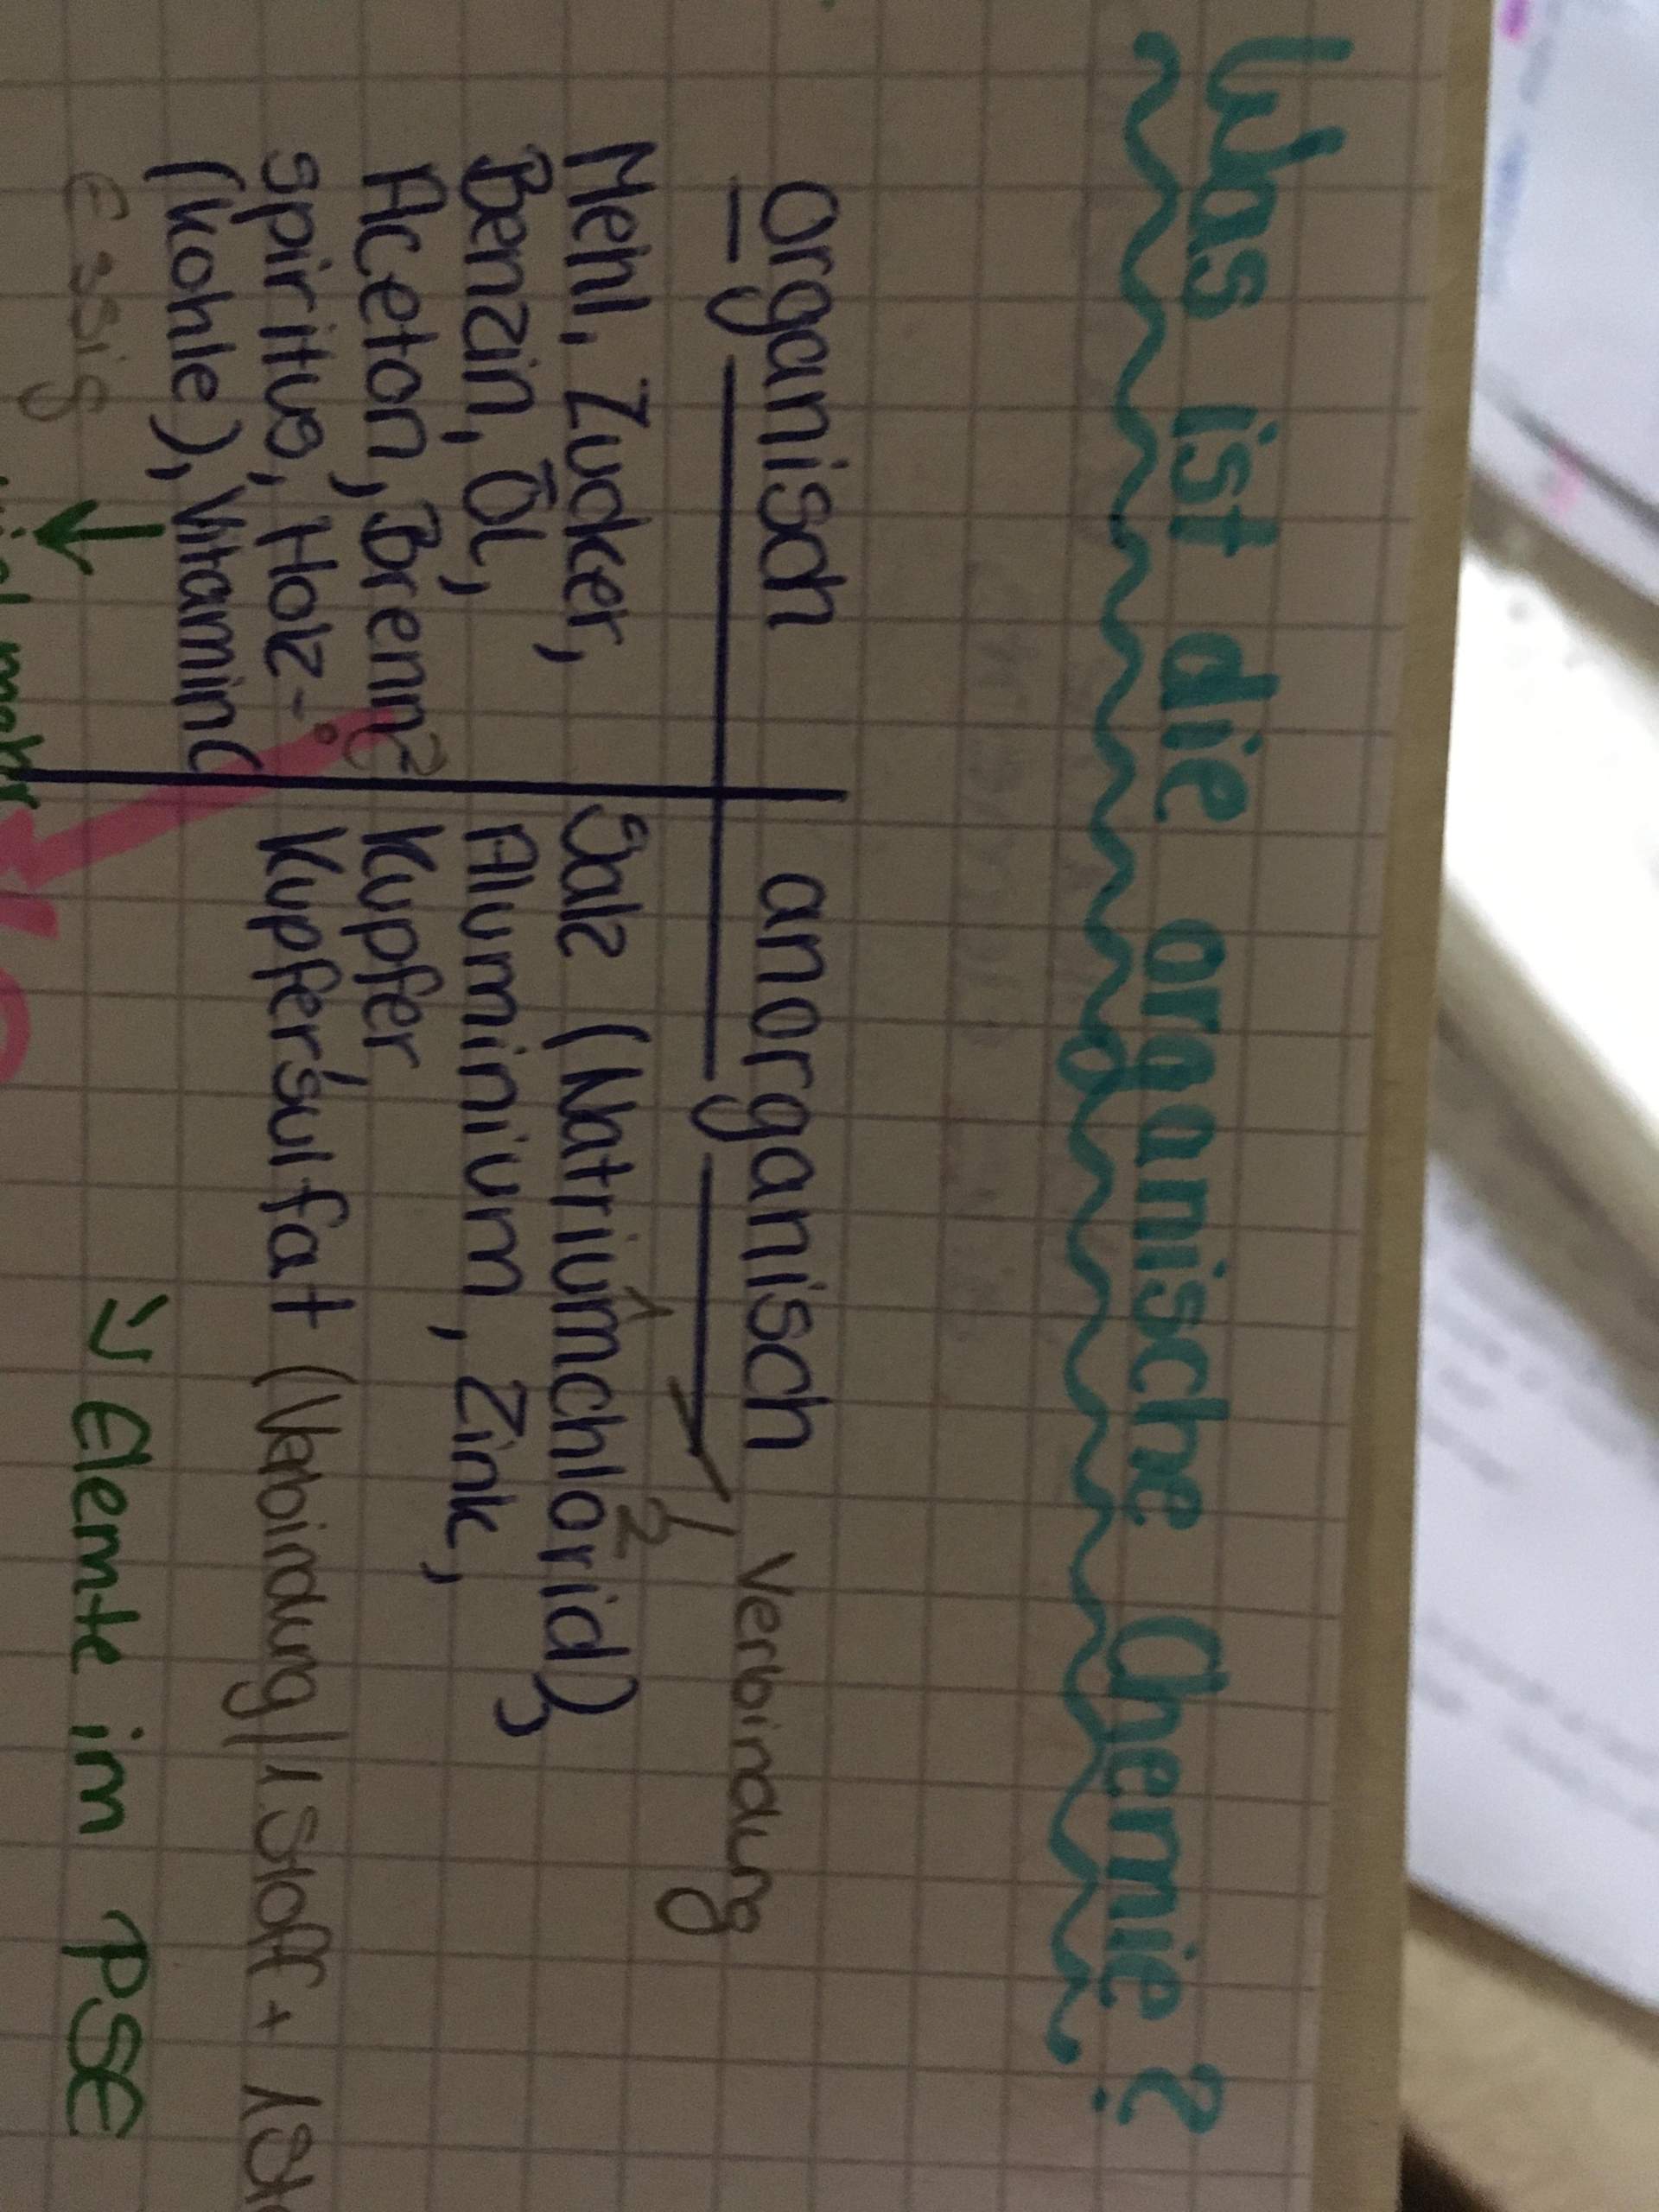 Was ist die organische Chemie?
organisch | anorganisch
Verbindung
1 2
Mehl, Zucker, | Salz (Natriumchlorid),
Benzin, Öl, | Aluminium, Zink,
Aceton, Brenn- | Kupfer,
spiritus, Holz- | Kupfersulfat (Verbindung | 1 Stoff + 1
(kohle), Vitamin C
Essig
=> Elemte im PSE